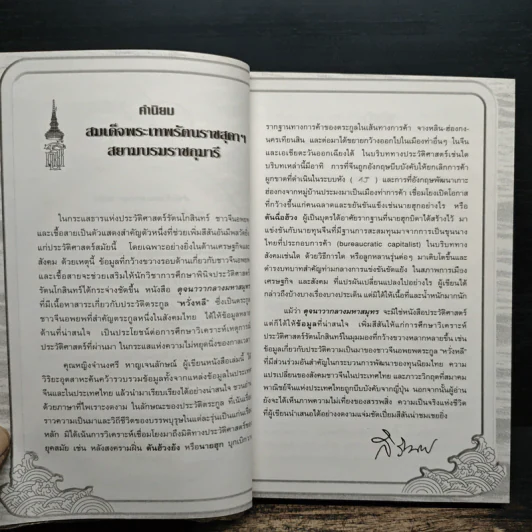 คำนิยม
สมเด็จพระเทพรัตนราชสุดาฯ
สยามบรมราชกุมารี
ในกระแสธารแห่งประวัติศาสตร์รัตนโกสินทร์ ชาวจีนอพยพ
และเชื้อสายเป็นตัวแสดงสำคัญตัวหนึ่งที่ช่วยเพิ่มสีสันอันมีพลวัตให้
แก่ประวัติศาสตร์สมัยนี้ โดยเฉพาะอย่างยิ่งในด้านเศรษฐกิจและ
สังคม ด้วยเหตุนี้ ข้อมูลที่กว้างขวางรอบด้านเกี่ยวกับชาวจีนอพยพ
และเชื้อสายจะช่วยเสริมให้นักวิชาการศึกษาพินิจประวัติศาสตร์
รัตนโกสินทร์ได้กระจ่างชัดขึ้น หนังสือ ดุจนาวากลางมหาสมุทร
ที่มีเนื้อหาสาระเกี่ยวกับประวัติตระกูล "หวั่งหลี" ซึ่งเป็นตระกูล
ชาวจีนอพยพที่สำคัญตระกูลหนึ่งในสังคมไทย ได้ให้ข้อมูลหลาย
ด้านที่น่าสนใจ เป็นประโยชน์ต่อการศึกษาวิเคราะห์เหตุการณ์
ประวัติศาสตร์ที่ผ่านมา ในกระแสแห่งความไม่หยุดนิ่งของกาลเวลา
คุณหญิงจำนงศรี หาญเจนลักษณ์ ผู้เขียนหนังสือเล่มนี้ ได้
วิริยะอุตสาหะค้นคว้ารวบรวมข้อมูลทั้งจากแหล่งข้อมูลในประเทศ
จีนและในประเทศไทย แล้วนำมาเรียบเรียงได้อย่างน่าสนใจ ชวนอ่าน
ด้วยภาษาที่ไพเราะงดงาม ในลักษณะของประวัติตระกูล ที่เน้นเรื่อง
ราวความเป็นมาและวิถีชีวิตของบรรพบุรุษในแต่ละรุ่นเป็นแก่นเรื่อง
หลัก มิได้เน้นการวิเคราะห์เชื่อมโยงมาถึงมิติทางประวัติศาสตร์ของ
ยุคสมัย เช่น หลังสงครามฝิ่น ตันฮ้วงย้ง หรือนายฮุก บุกเบิกวาง
รากฐานทางการค้าของตระกูลในเส้นทางการค้า จางหลิน-ฮ่องกง-
นครเทียนสิน และต่อมาได้ขยายกว้างออกไปในเมืองท่าอื่นๆ ในจีน
และเอเชียตะวันออกเฉียงใต้ ในบริบททางประวัติศาสตร์เช่นใด
บริบทเหล่านี้มีอาทิ การที่จีนถูกอังกฤษบีบบังคับให้ยกเลิกการค้า
ผูกขาดที่ดำเนินในระบบหัง (行) และการที่อังกฤษพัฒนาเกาะ
ฮ่องกงจากหมู่บ้านประมงมาเป็นเมืองท่าการค้า เชื่อมโยงเปิดโอกาส
ที่กว้างขึ้นแก่คนฉลาดและขยันขันแข็งเช่นนายฮุกอย่างไร หรือ
ตันฉื่อฮ้วง ผู้เป็นบุตรได้อาศัยรากฐานที่นายฮุกบิดาได้สร้างไว้ มา
แข่งขันกับนายทุนจีนที่มีฐานการสะสมทุนมาจากการเป็นขุนนาง
ไทยที่ประกอบการค้า (bureaucratic capitalist) ในบริบททาง
สังคมเช่นใด ด้วยวิธีการใด หรือลูกหลานรุ่นต่อๆ มาเติบโตขึ้นและ
ดำรงบทบาทสำคัญท่ามกลางการแข่งขันขัดแย้ง ในสภาพการเมือง
เศรษฐกิจ และสังคม ที่แปรผันเปลี่ยนแปลงไปอย่างไร ผู้เขียนได้
กล่าวถึงบ้างบางเรื่องบางประเด็น แต่มิได้ให้เนื้อที่และน้ำหนักมากนัก
แม้ว่า ดุจนาวากลางมหาสมุทร จะมิใช่หนังสือประวัติศาสตร์
แต่ก็ได้ให้ข้อมูลที่น่าสนใจ เพิ่มสีสันให้แก่การศึกษาวิเคราะห์
ประวัติศาสตร์รัตนโกสินทร์ในมุมมองที่กว้างขวางหลากหลายขึ้น เช่น
ข้อมูลเกี่ยวกับประวัติความเป็นมาของชาวจีนอพยพตระกูล "หวั่งหลี"
ที่มีส่วนร่วมอันสำคัญในกระบวนการพัฒนาของทุนนิยมไทย ความ
แปรเปลี่ยนของสังคมชาวจีนในประเทศไทย และภาวะวิกฤตที่สมาคม
พาณิชย์จีนแห่งประเทศไทยถูกบีบบังคับจากญี่ปุ่น นอกจากนั้นผู้อ่าน
ยังจะได้เห็นภาพความไม่เที่ยงของสรรพสิ่ง ความเป็นจริงแห่งชีวิต
ที่ผู้เขียนนำเสนอได้อย่างงดงามแจ่มชัดเปี่ยมสีสันน่าชมเชยยิ่ง